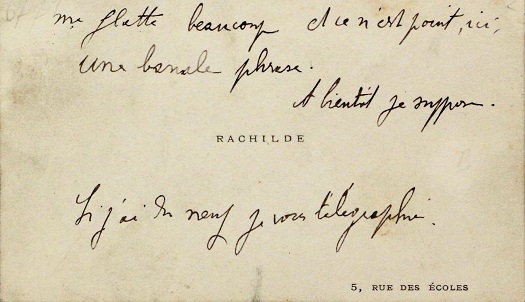 me flatte beaucoup et ce n'est point, ici,
une banale phrase.
A bientôt je suppose.
RACHILDE
Si j'ai du neuf je vous télégraphie.
5, RUE DES ÉCOLES